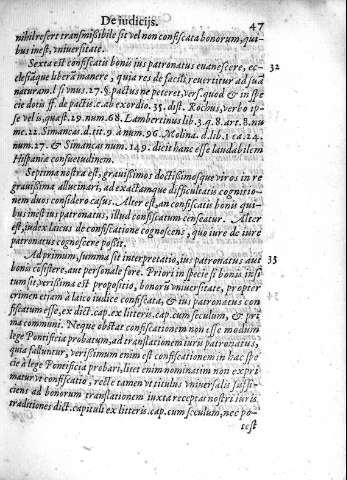 De iudicijs.
47
nihil refert transmissibile sit vel non confiscata bonorum, qui-
bus inest, vniuersitate.
Sexta est confiscatis bonis ius patronatus euanescere, ec-
32
clesiáque liberã manere, quia res de facili reuertitur ad suã
naturam. l si vnus. 27. §. pactus ne peteret, vers. quod & in spe
cie dotis ff. de pactis. c. ab exordio. 35. dist. Rochus, verbo ip-
se vel is, quæst. 29. num. 68. Lambertinus lib. 3. q. 8. art. 8. nu
me. 22. Simancas. d. tit. 9. à num. 96. Molina. d. lib. 1 ca. 24.
num. 27. & Simancas num. 149. dicit hanc esse laudabilem
Hispaniæ consuetudinem.
Septima nostra est, grauissimos doctissimosque viros in re
grauissima allucinari, ad exactamque difficultatis cognitio-
nem duos considero casus. Alter est, an confiscatis bonis qui-
bus inest ius patronatus, illud confiscatum censeatur. Alter
est, iudex laicus de confiscatione cognoscens, quo iure de iure
patronatus cognoscere possit.
Ad primum, summa sit interpretatio, ius patronatus aut
33
bonis cosistere, aut personale fore. Priori in specie si bonis insi
tum sit, verissima est propositio, bonorũ vniuersitate, propter
crimen etiam à laico iudice confiscata, & ius patronatus con
fiscatum esse, ex dict. cap. ex literis. cap. cum seculum, & pri
ma communi. Neque obstat confiscationem non esse modum
lege Pontificia probatum, ad translationem iuris patronatus,
quia falluntur, verissimum enim est confiscationem in hac spe
cie à lege Pontificia probari, licet enim nominatim non expri
matur vt confiscatio, recte tamen vt titulus vniuersalis suffi-
ciens ad bonorum translationem iuxta receptas nostri iuris
traditiones dict. capituli ex litteris. cap. cum seculum, nec po-
test